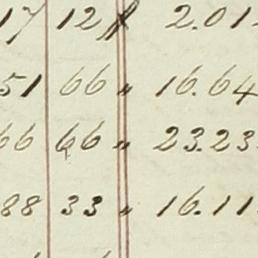 17 12 2.01
51 66 " 16.64
66 66 " 23.23
88 33 " 16.11